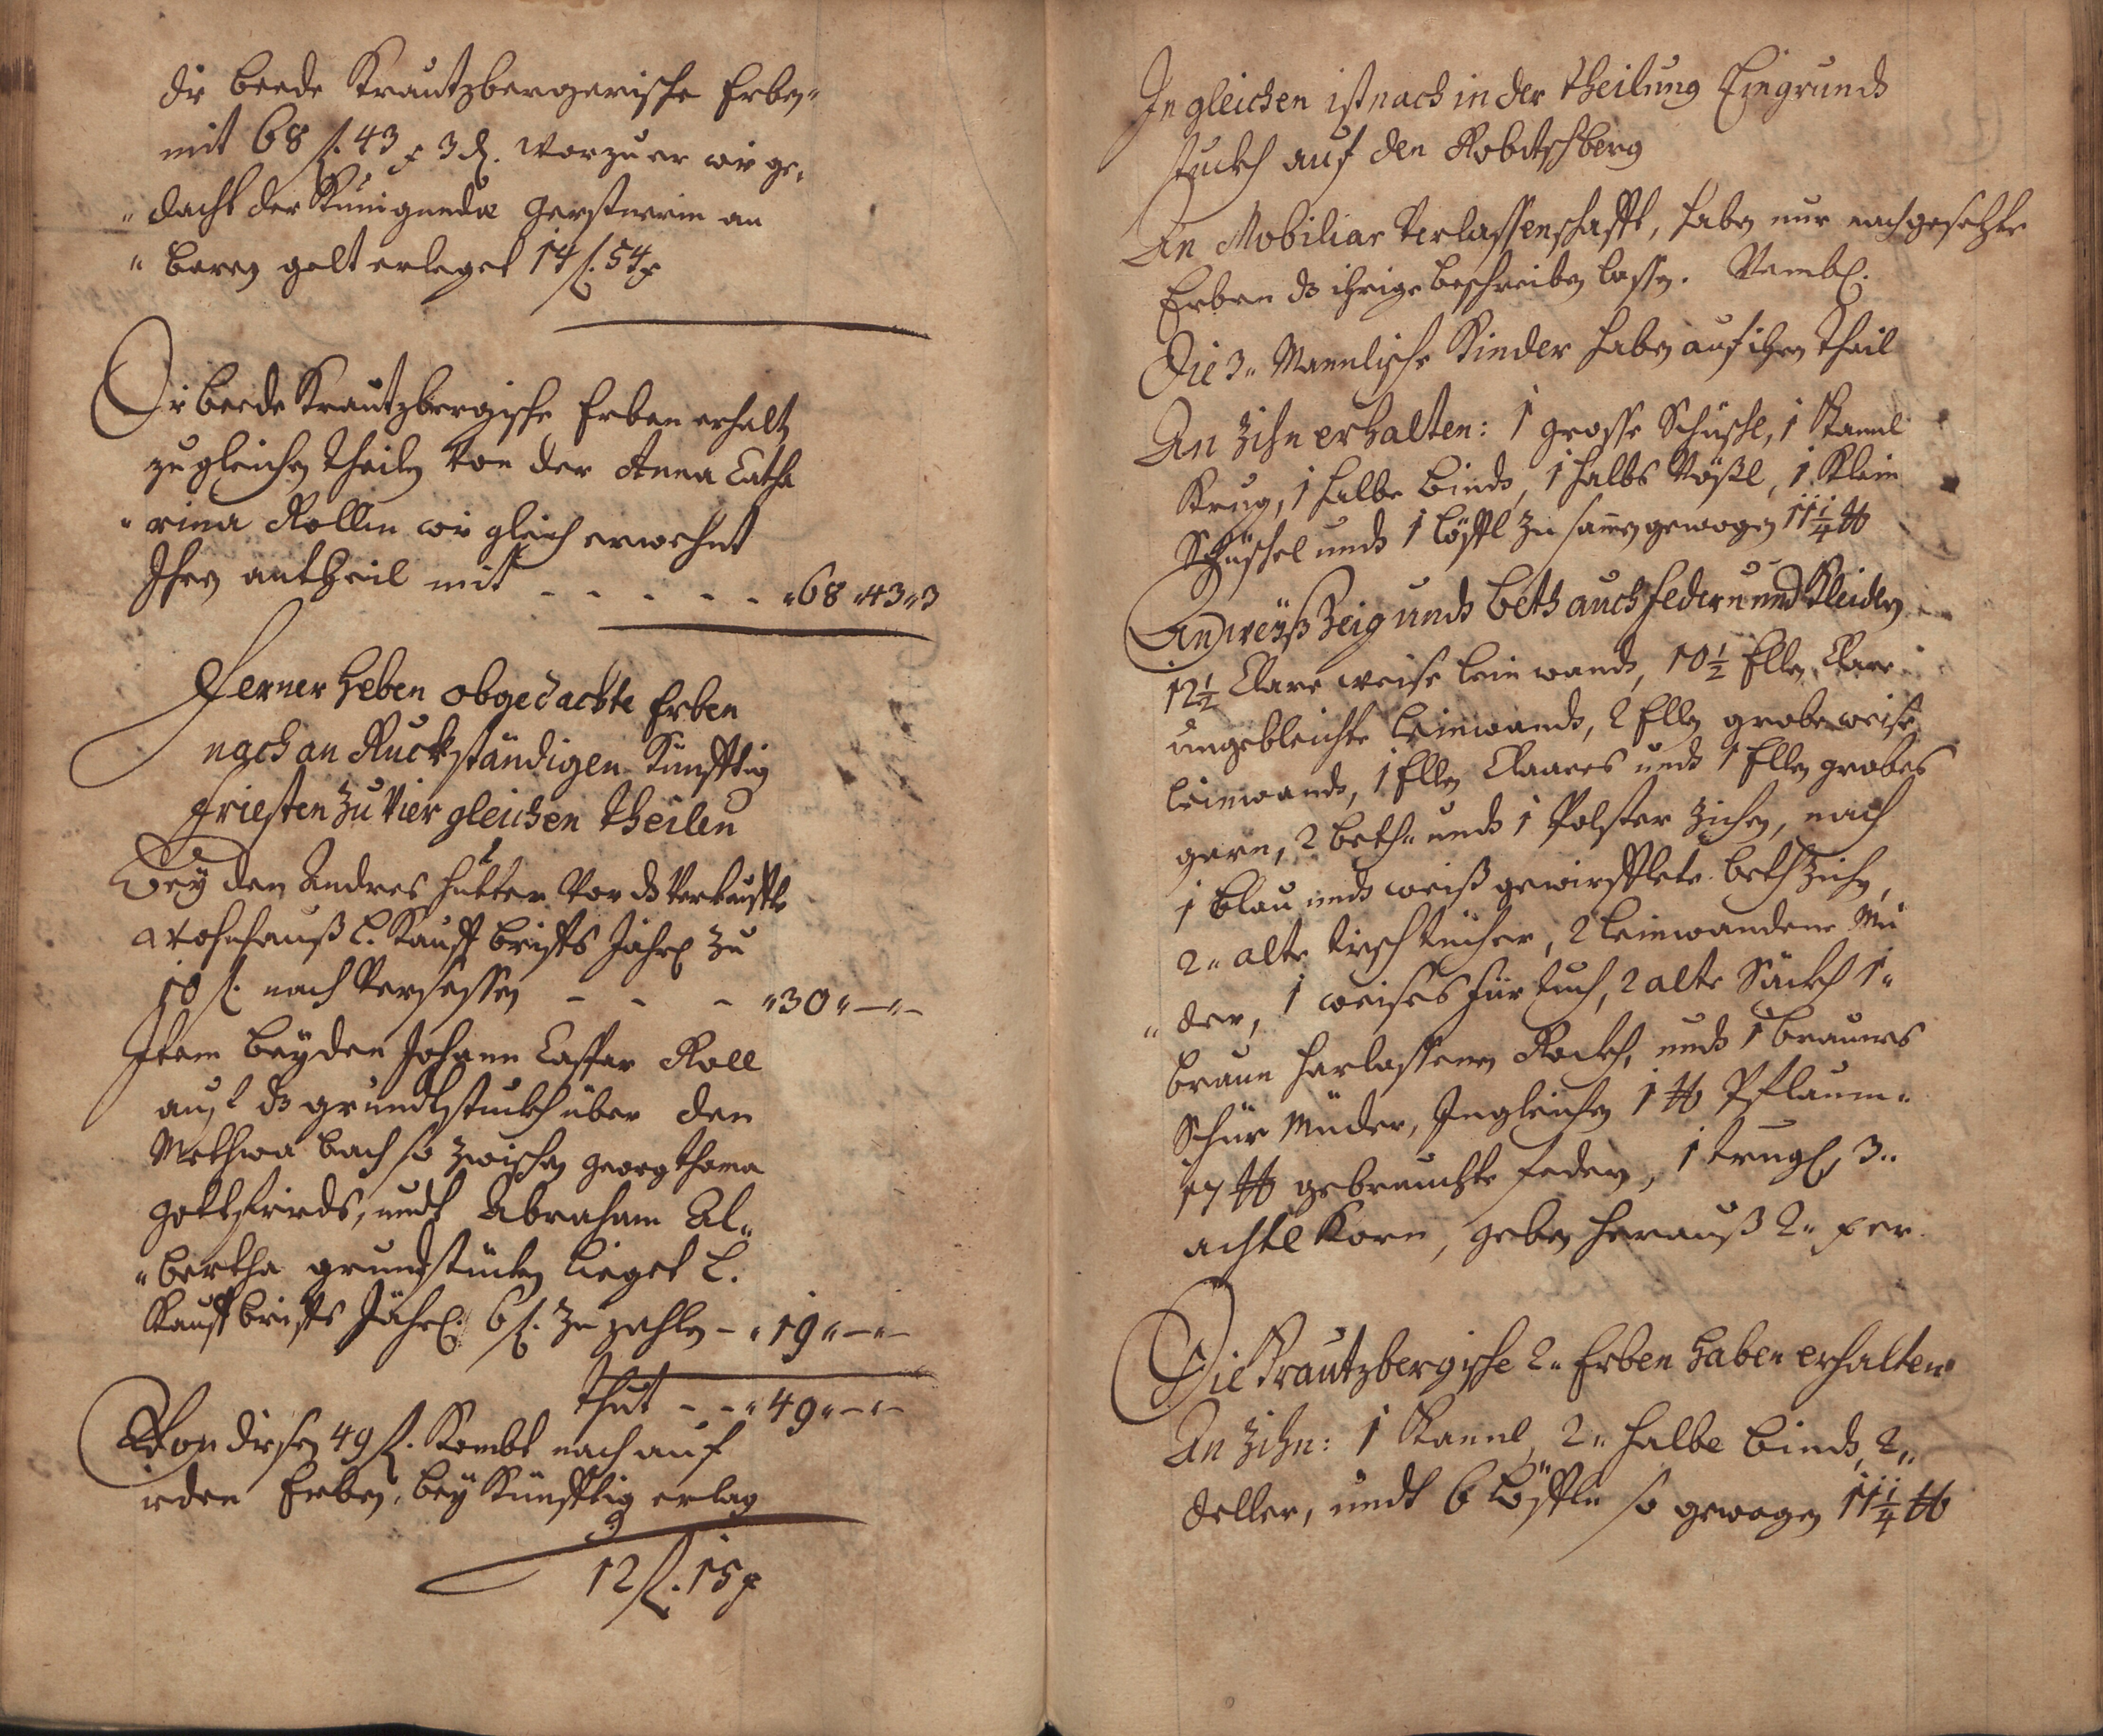 die beede Krautzbergerische Erben
mit 68 f. 43 x 3 d. Worzu er wie ge„
„dacht der Kunigunda Gerstnerin an
„baren gelt erleget 14 f. 54 x
Die beede Krautzbergische Erben erhalten
zu gleichen theilen von der Anna Catha
„rina Rollin wie gleich erwehnt
Ihren antheil mit - - - - - - „68„43„3
Ferner heben obgedachte Erben
nach an Ruckständigen Künfftig
Friesten zu vier gleichen theilen
Beÿ den Andres Hutter vor ds verkauffte
Wohnhauß l. Kauff brieffs Jährl zu
10 f. nach versessen - - - „30„—„—
Item beÿ den Johann Casspar Roll
auf ds grundtstuckh über den
Methwa bach so zwischen georg thoma
gottfrieds, undt Abraham Al„
„bertha grundstücken lieget l.
Kauff brieffs Jährl: 6 f. zu zahlen - „19„—„—
thut - - „49„—„—
Von diesen 49 f. kombt nach auf
ieden Erben, beÿ Künfftig erlag
12 f. 15 x
In gleichen ist nach in der theilung Ein grunds
stuckh auf den Robitschberg
An Mobiliar Verlassenschafft, haben nur nachgesetzte
Erben ds ihrige beschreiben lassen. Nembl.
Die 3„ Mannlische Kinder haben auf ihren theil
An Zihn erhalten: 1 grosse Schüssl, 1 Kannl
Krug, 1 halbe binds, 1 halbs Nößl, 1 Klein
Schüssel unds 1 löffl zu samen gewogen 11 1/4 ℔
An weiß Zeig unds beth auch federn und Kleiden
12 1/2 Clare weise leinwands, 10 1/2 Ellen Clare
ungebleichte leinwands, 2 Ellen grobe weise
leinwands, 1 Ellen Claares unds 1 Ellen grobes
garn, 2 beth„ unds 1 Polster Zichen, nach
1 blau unds weiß gewürfflete beth Ziche,
2„ alte tisch tücher, 2 leinwandene Mü
„der, 1 weises fürtuch, 2 alte Säckh 1„
braun harlassenen Rockh, unds 1 braunes
Schnür Müder, Ingleichen 1 ℔ Pflaum„
17 ℔ gebrauchte federn, 1 trugl, 3„
achtl Korn, geben herauß 2„ xer
Die Krautzbergische 2„ Erben haben erhalten
An Zihn: 1 Kannl, 2„ halbe binds, 2„
deller, undt 6 löffln so gewogen 11 1/4 ℔